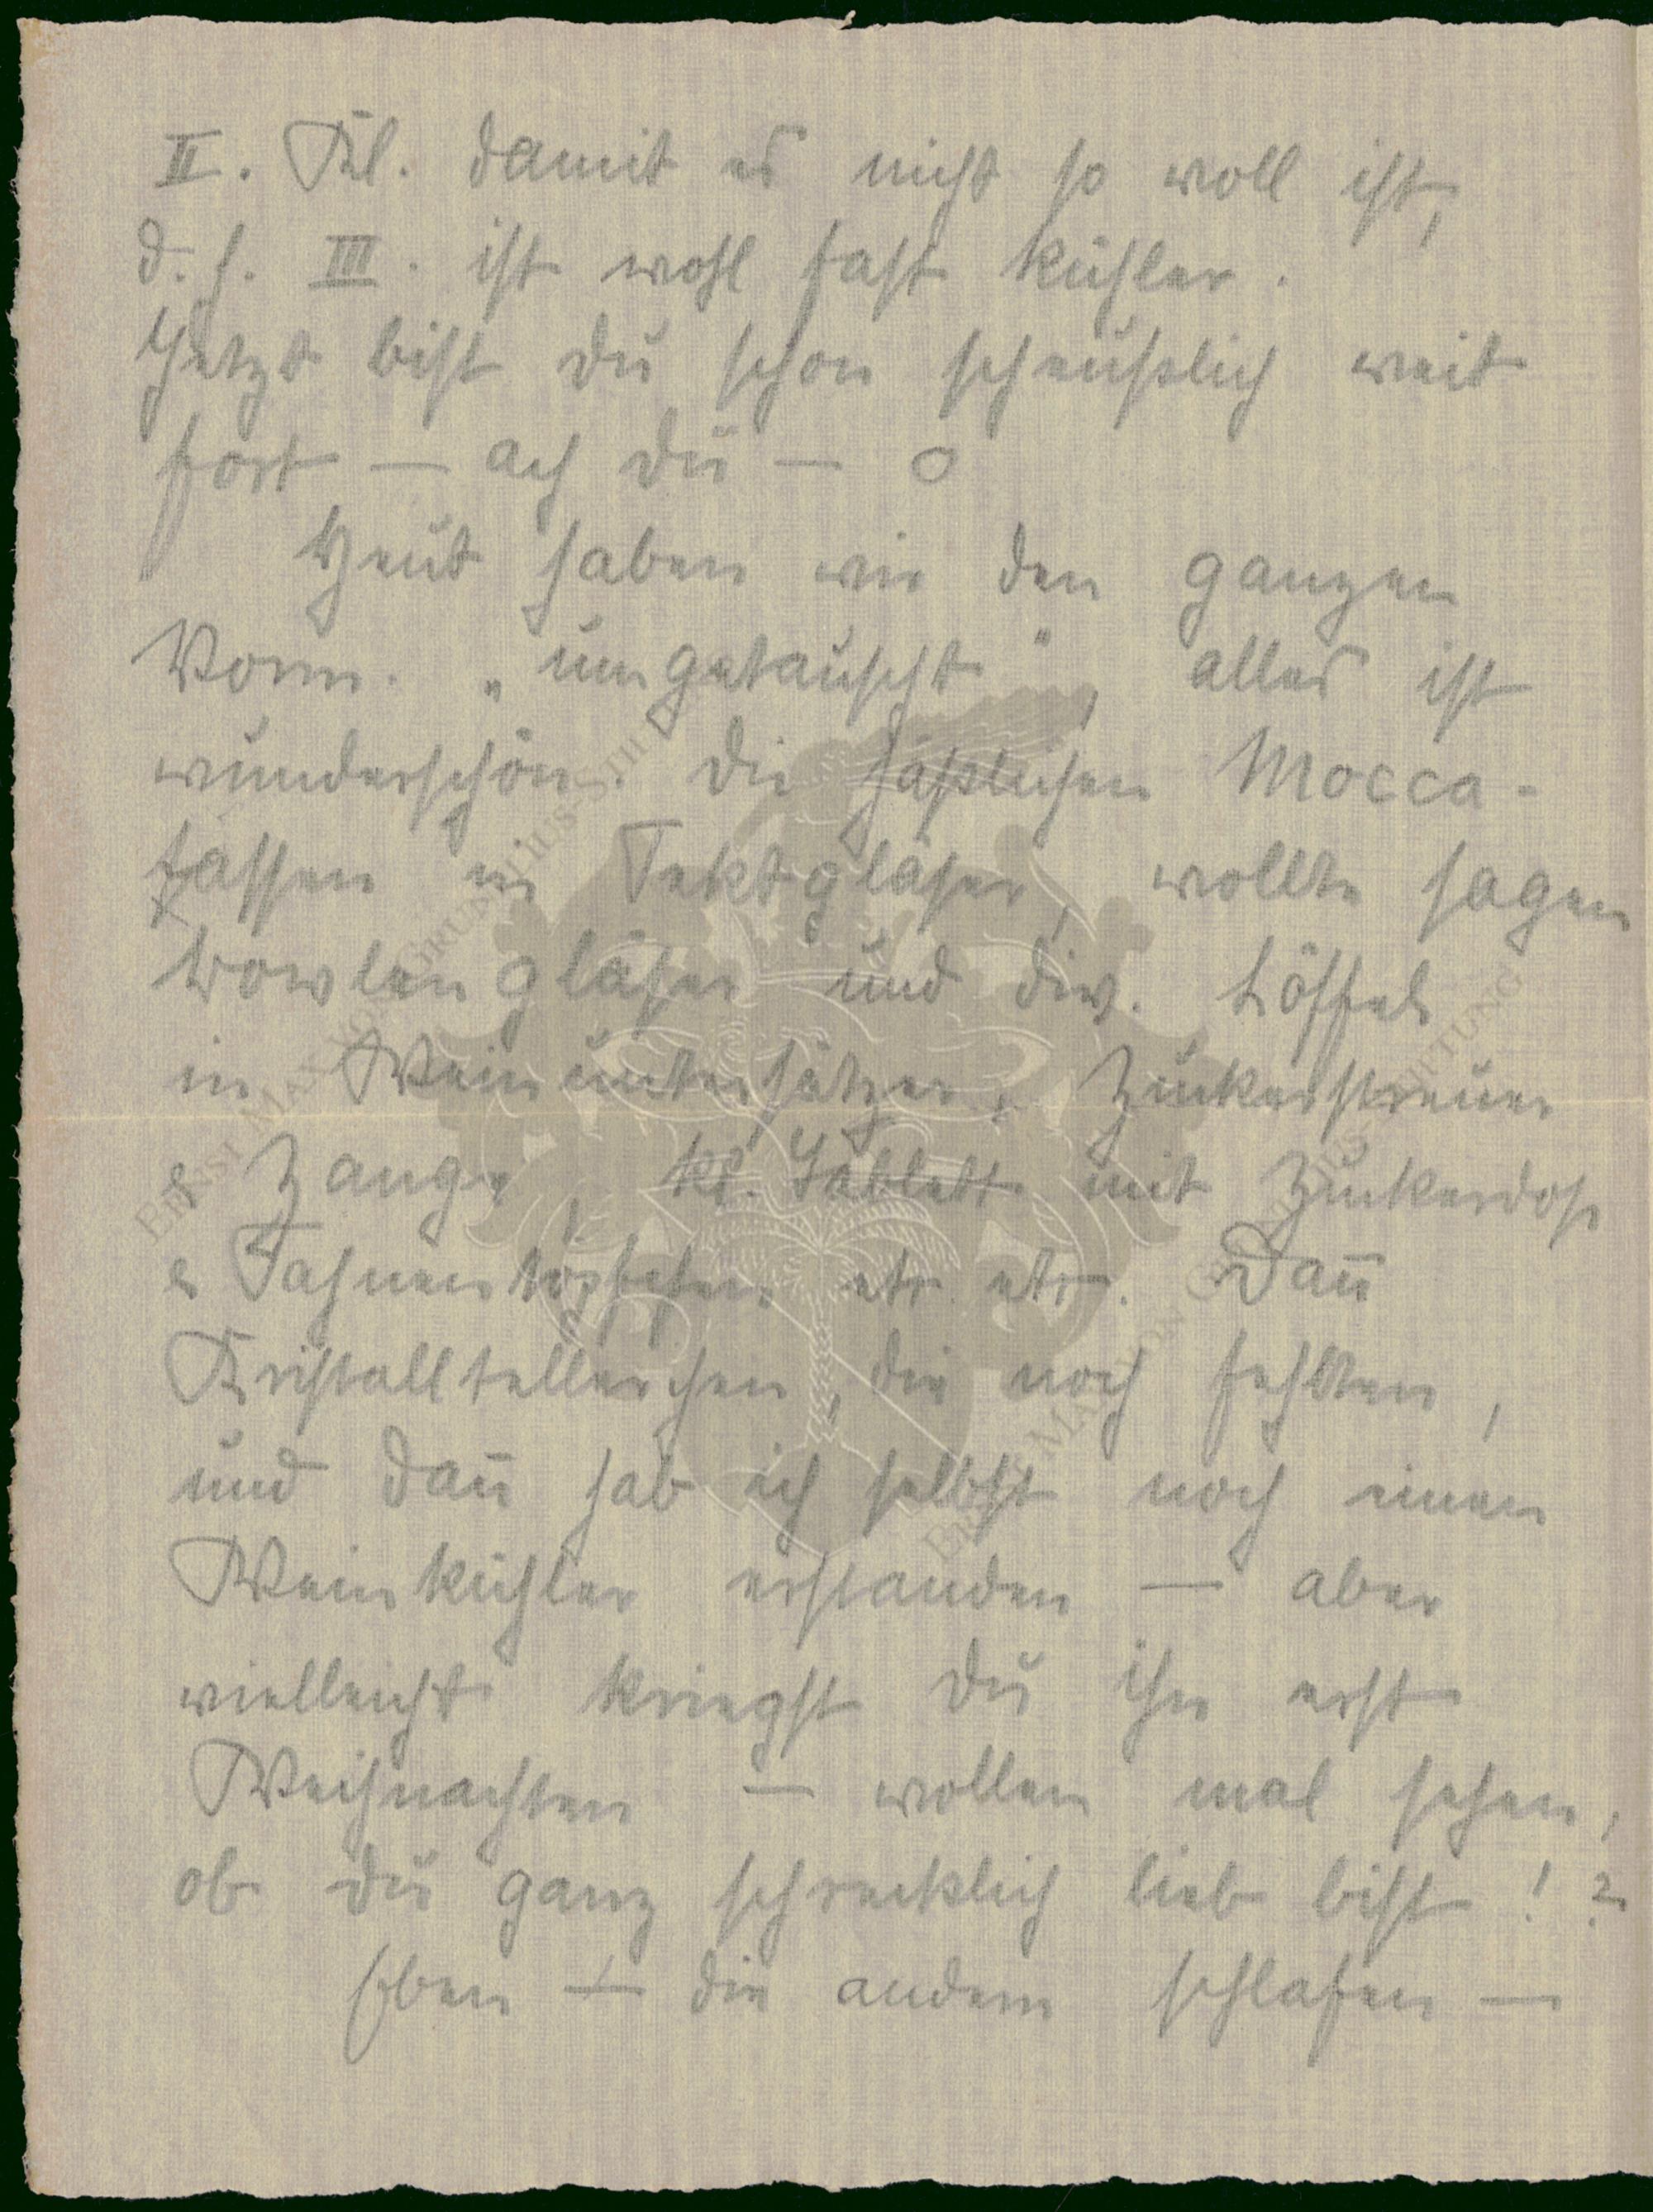 II. Kl. damit es nicht so voll ist,
d. h. III. ist wohl fast kühler.
Jetzt bist du schon scheußlich weit
fort — ach du — o
Heut haben wir den ganzen
Vorm. „umgetauscht", alles ist
wunderschön. Die häßlichen Mocca-
tassen in Sektgläser, wollte sagen
Bowlengläser und div. Löffel
in Weinuntersätzer, Zuckerstreuer
& Zange, kl. Tablett mit Zuckerdose
& Sahnentöpfchen etc. etc. Dan̄
Kristalltellerchen, die noch fehlten,
und dan̄ hab ich selbst noch einen
Weinkühler erstanden — aber
vielleicht kriegst du ihn erst
Weihnachten — wollen mal sehen,
ob du ganz schrecklich lieb bist!?
Eben — die andern schlafen —
ERNST MAX VON GRUNELIUS-STIFTUNG
ERNST MAX VON GRUNELIUS-STIFTUNG